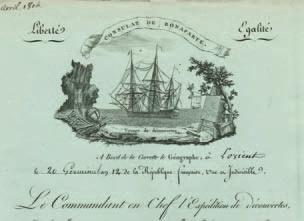 avril 1804
Liberté
Egalité
CONSULAT DE BONAPARTE.
Voyage de découvertes.
A Bord de la Corvette le Géographe, à Lorient
le 20 Germinal an 12 de la République française, une et Indivisible.
Le Commandant en Chef l'Expédition de découvertes,